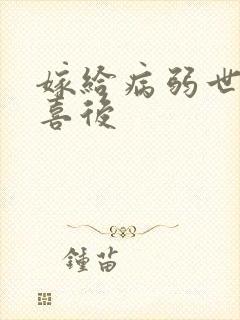 嫁給病弱世
喜後
鍾苗